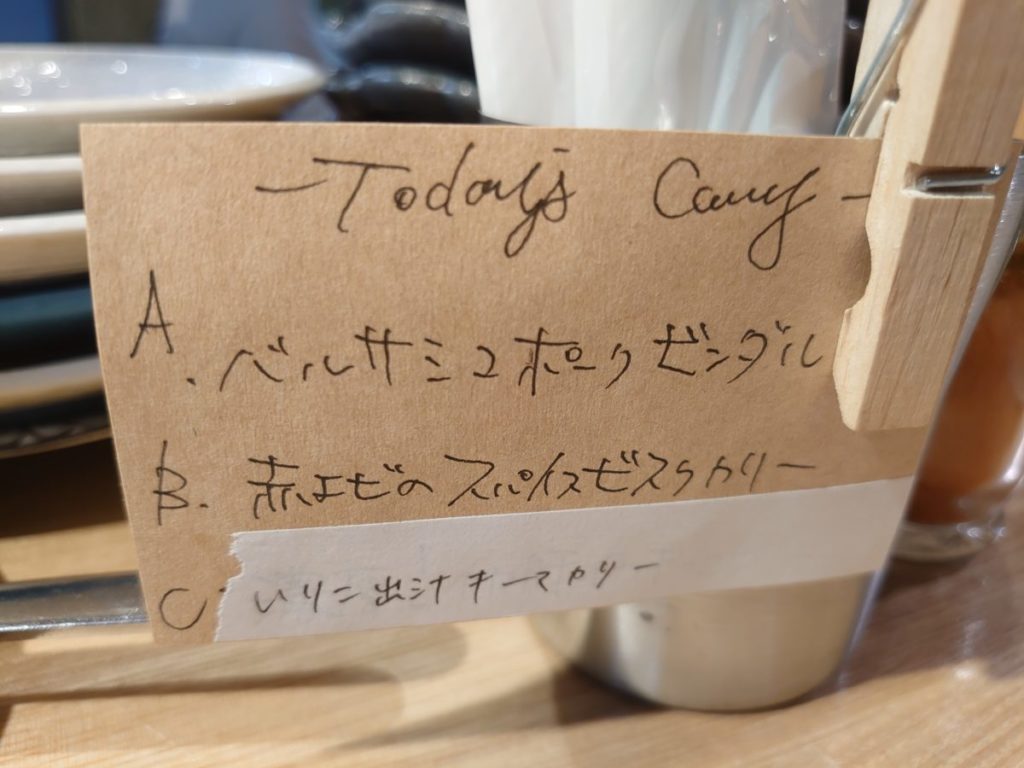 -Today's Curry-
A. バルサミコポークビンダル
B. 赤エビのスパイスビスクカリー
C. いりこ出汁キーマカリー